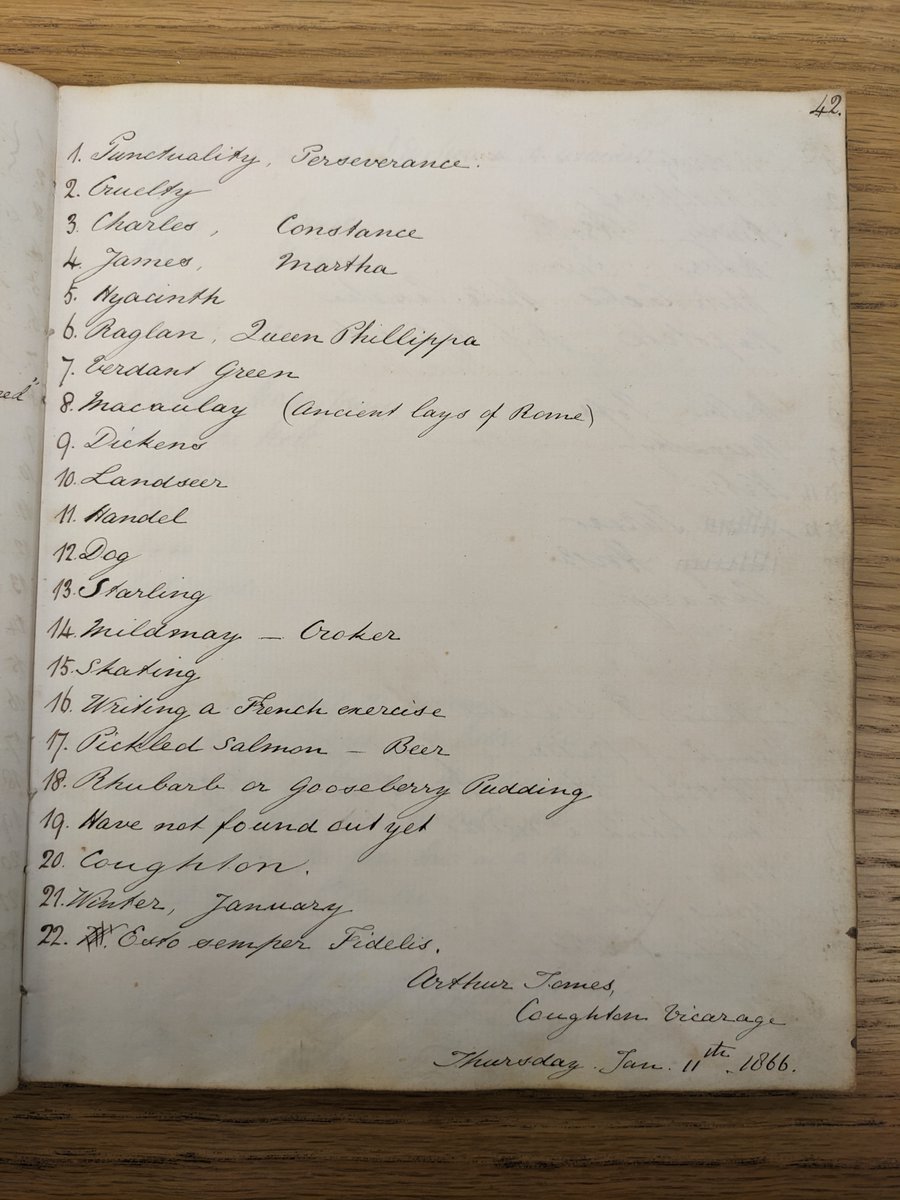 42.
1. Punctuality, Perseverance.
2. Cruelty
3. Charles, Constance
4. James, Martha
5. Hyacinth
6. Raglan, Queen Phillippa
7. Verdant Green
8. Macaulay (Ancient lays of Rome)
9. Dickens
10. Landseer
11. Handel
12. Dog
13. Starling
14. Mildmay – Croker
15. Skating
16. Writing a French exercise
17. Pickled Salmon – Beer
18. Rhubarb or Gooseberry Pudding
19. Have not found out yet
20. Coughton.
21. Winter, January
22. Esto semper Fidelis.
Arthur Tomes,
Coughton Vicarage
Thursday. Jan. 11th. 1866.